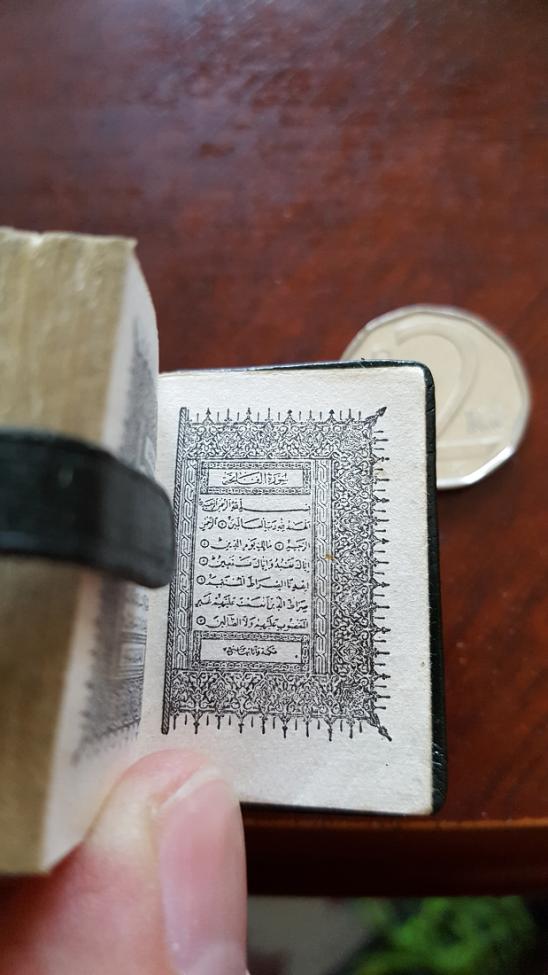 سورة الفاتحة
بسم الله الرحمن الرحيم
الحمد لله رب العالمين ۝ الرحمن
الرحيم ۝ مالك يوم الدين ۝
اياك نعبد واياك نستعين ۝
اهدنا الصراط المستقيم ۝
صراط الذين انعمت عليهم غير
المغضوب عليهم ولا الضالين ۝
2
Kč